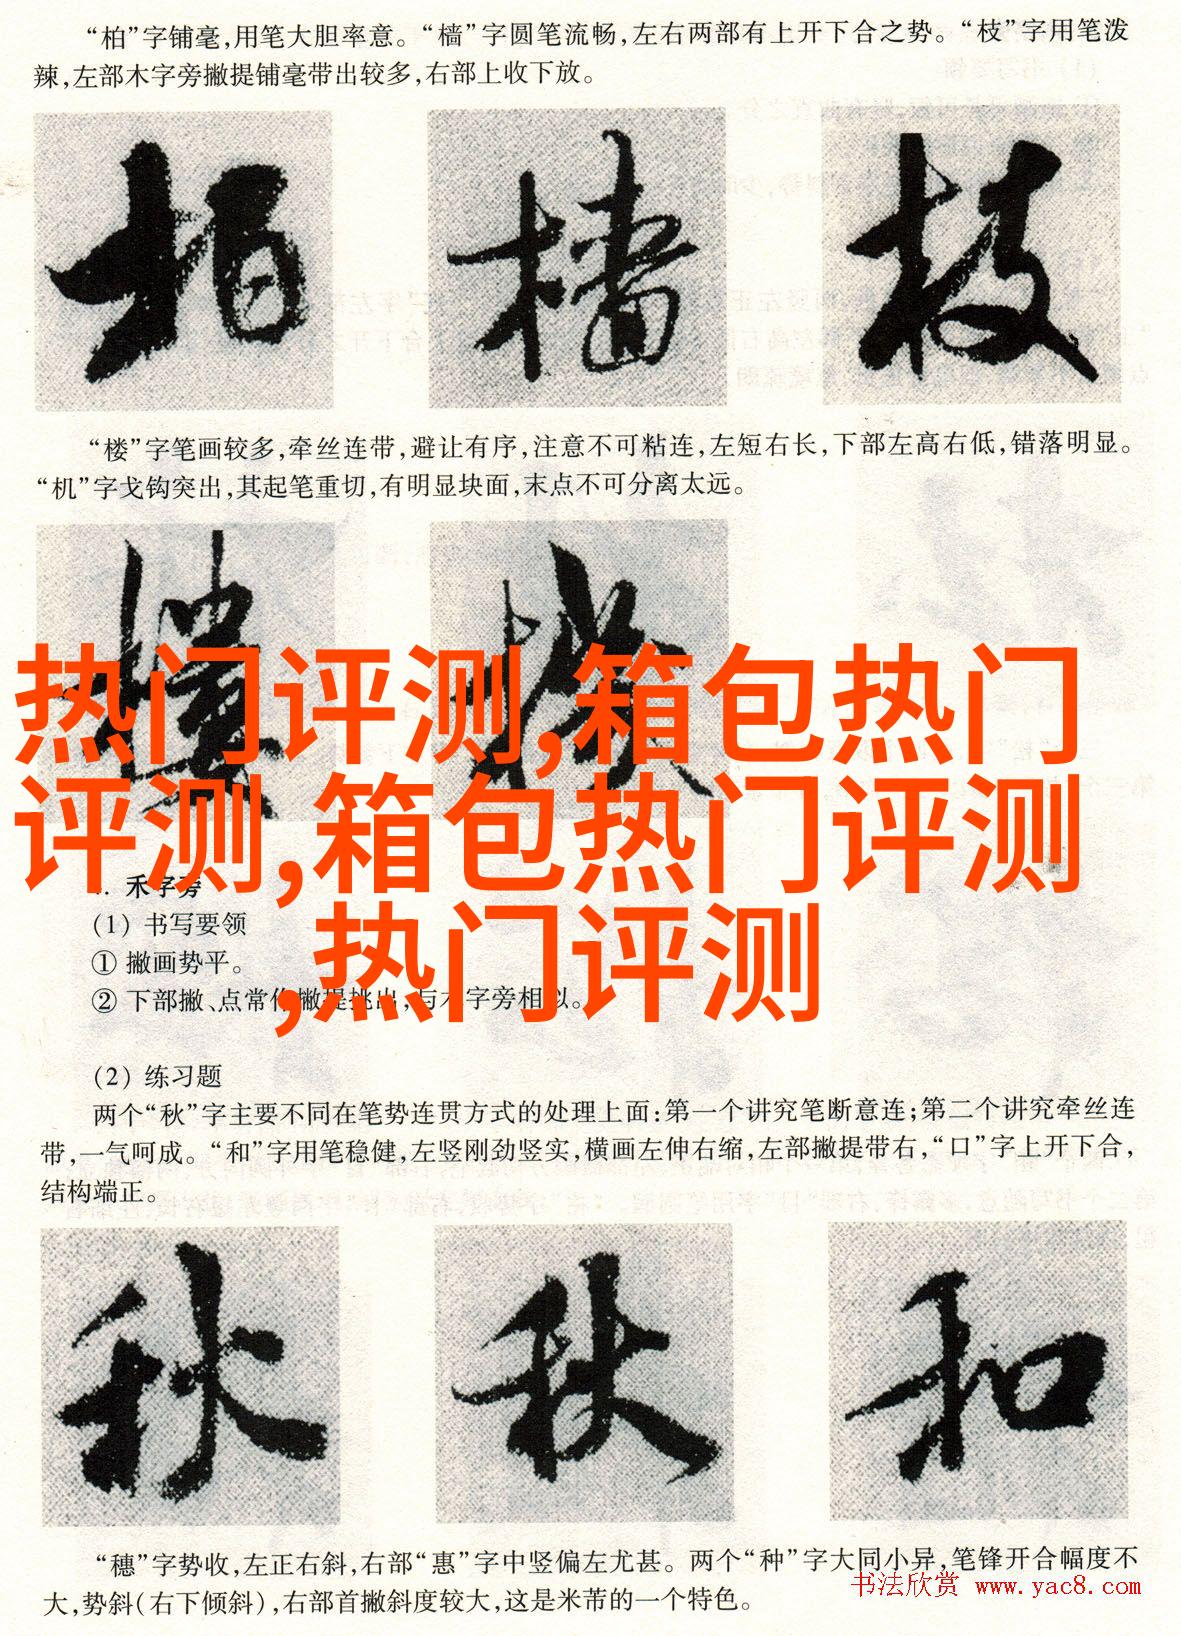 “柏”字铺毫,用笔大胆率意。“樯”字圆笔流畅,左右两部有上开下合之势。“枝”字用笔泼
辣,左部木字旁撇提铺毫带出较多,右部上收下放。
柏 樯 枝
“楼”字笔画较多,牵丝连带,避让有序,注意不可粘连,左短右长,下部左高右低,错落明显。
“机”字戈钩突出,其起笔重切,有明显块面,末点不可分离太远。
热门评测,箱包热门
评测,箱包热门评测
,热门评测
禾字旁
(1) 书写要领
① 撇画势平。
② 下部撇、点常作撇提挑出,与木字旁相似。
(2) 练习题
两个“秋”字主要不同在笔势连贯方式的处理上面:第一个讲究笔断意连;第二个讲究牵丝连
带,一气呵成。“和”字用笔稳健,左竖刚劲竖实,横画左伸右缩,左部撇提带右,“口”字上开下合,
结构端正。
秋 秋 和
“穗”字势收,左正右斜,右部“惠”字中竖偏左尤甚。两个“种”字大同小异,笔锋开合幅度不
大,势斜(右下倾斜),右部首撇斜度较大,这是米芾的一个特色。
书法欣赏 www.yac8.com